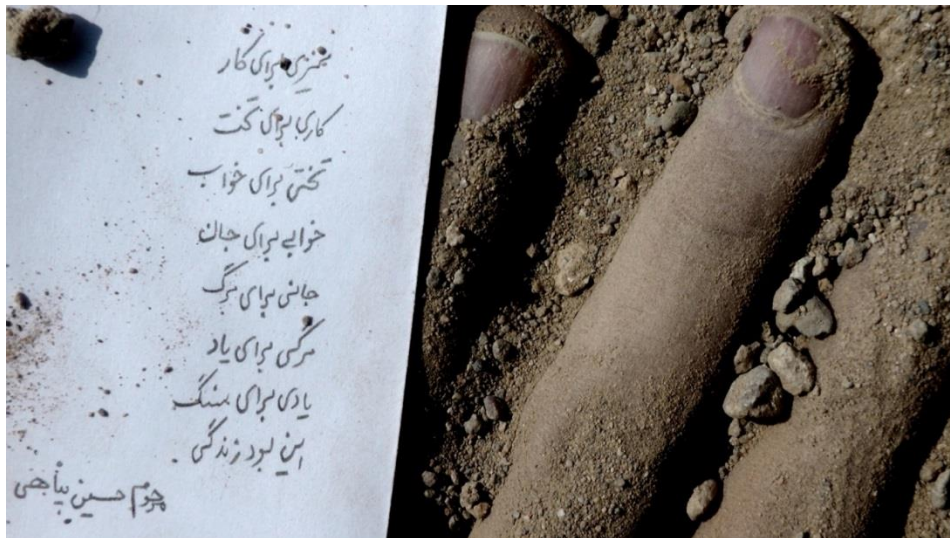 میزی برای کار
کاری برای تخت
تختی برای خواب
خوابی برای جان
جانی برای مرگ
مرگی برای یاد
یادی برای سنگ
این بود زندگی .
مرحوم حسین پناهی